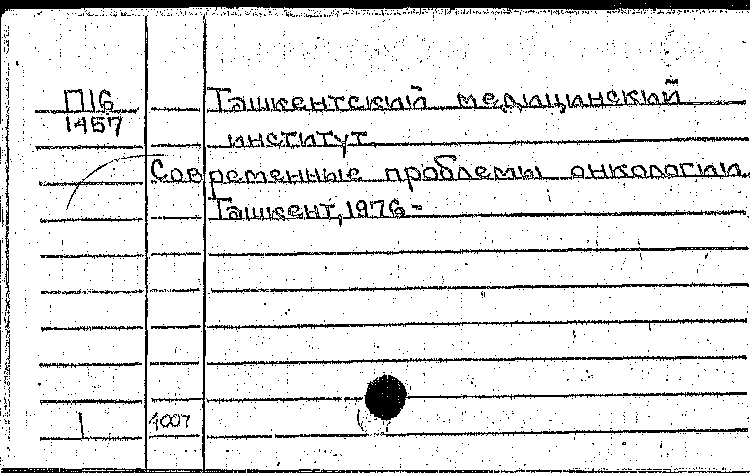 П16 Ташкентский медицинский
1457 институт.
Современные проблемы онкологии.
Ташкент, 1976 -
1 4007